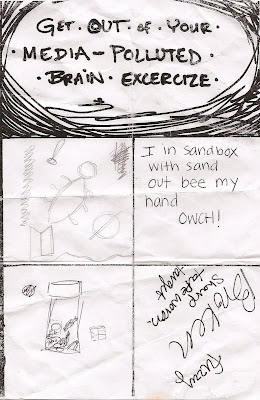 GET · OUT · OF · YOUR ·
· MEDIA - POLLUTED ·
· BRAIN · EXCERCIZE ·
I in sandbox
with sand
out bee my
hand
OWCH!